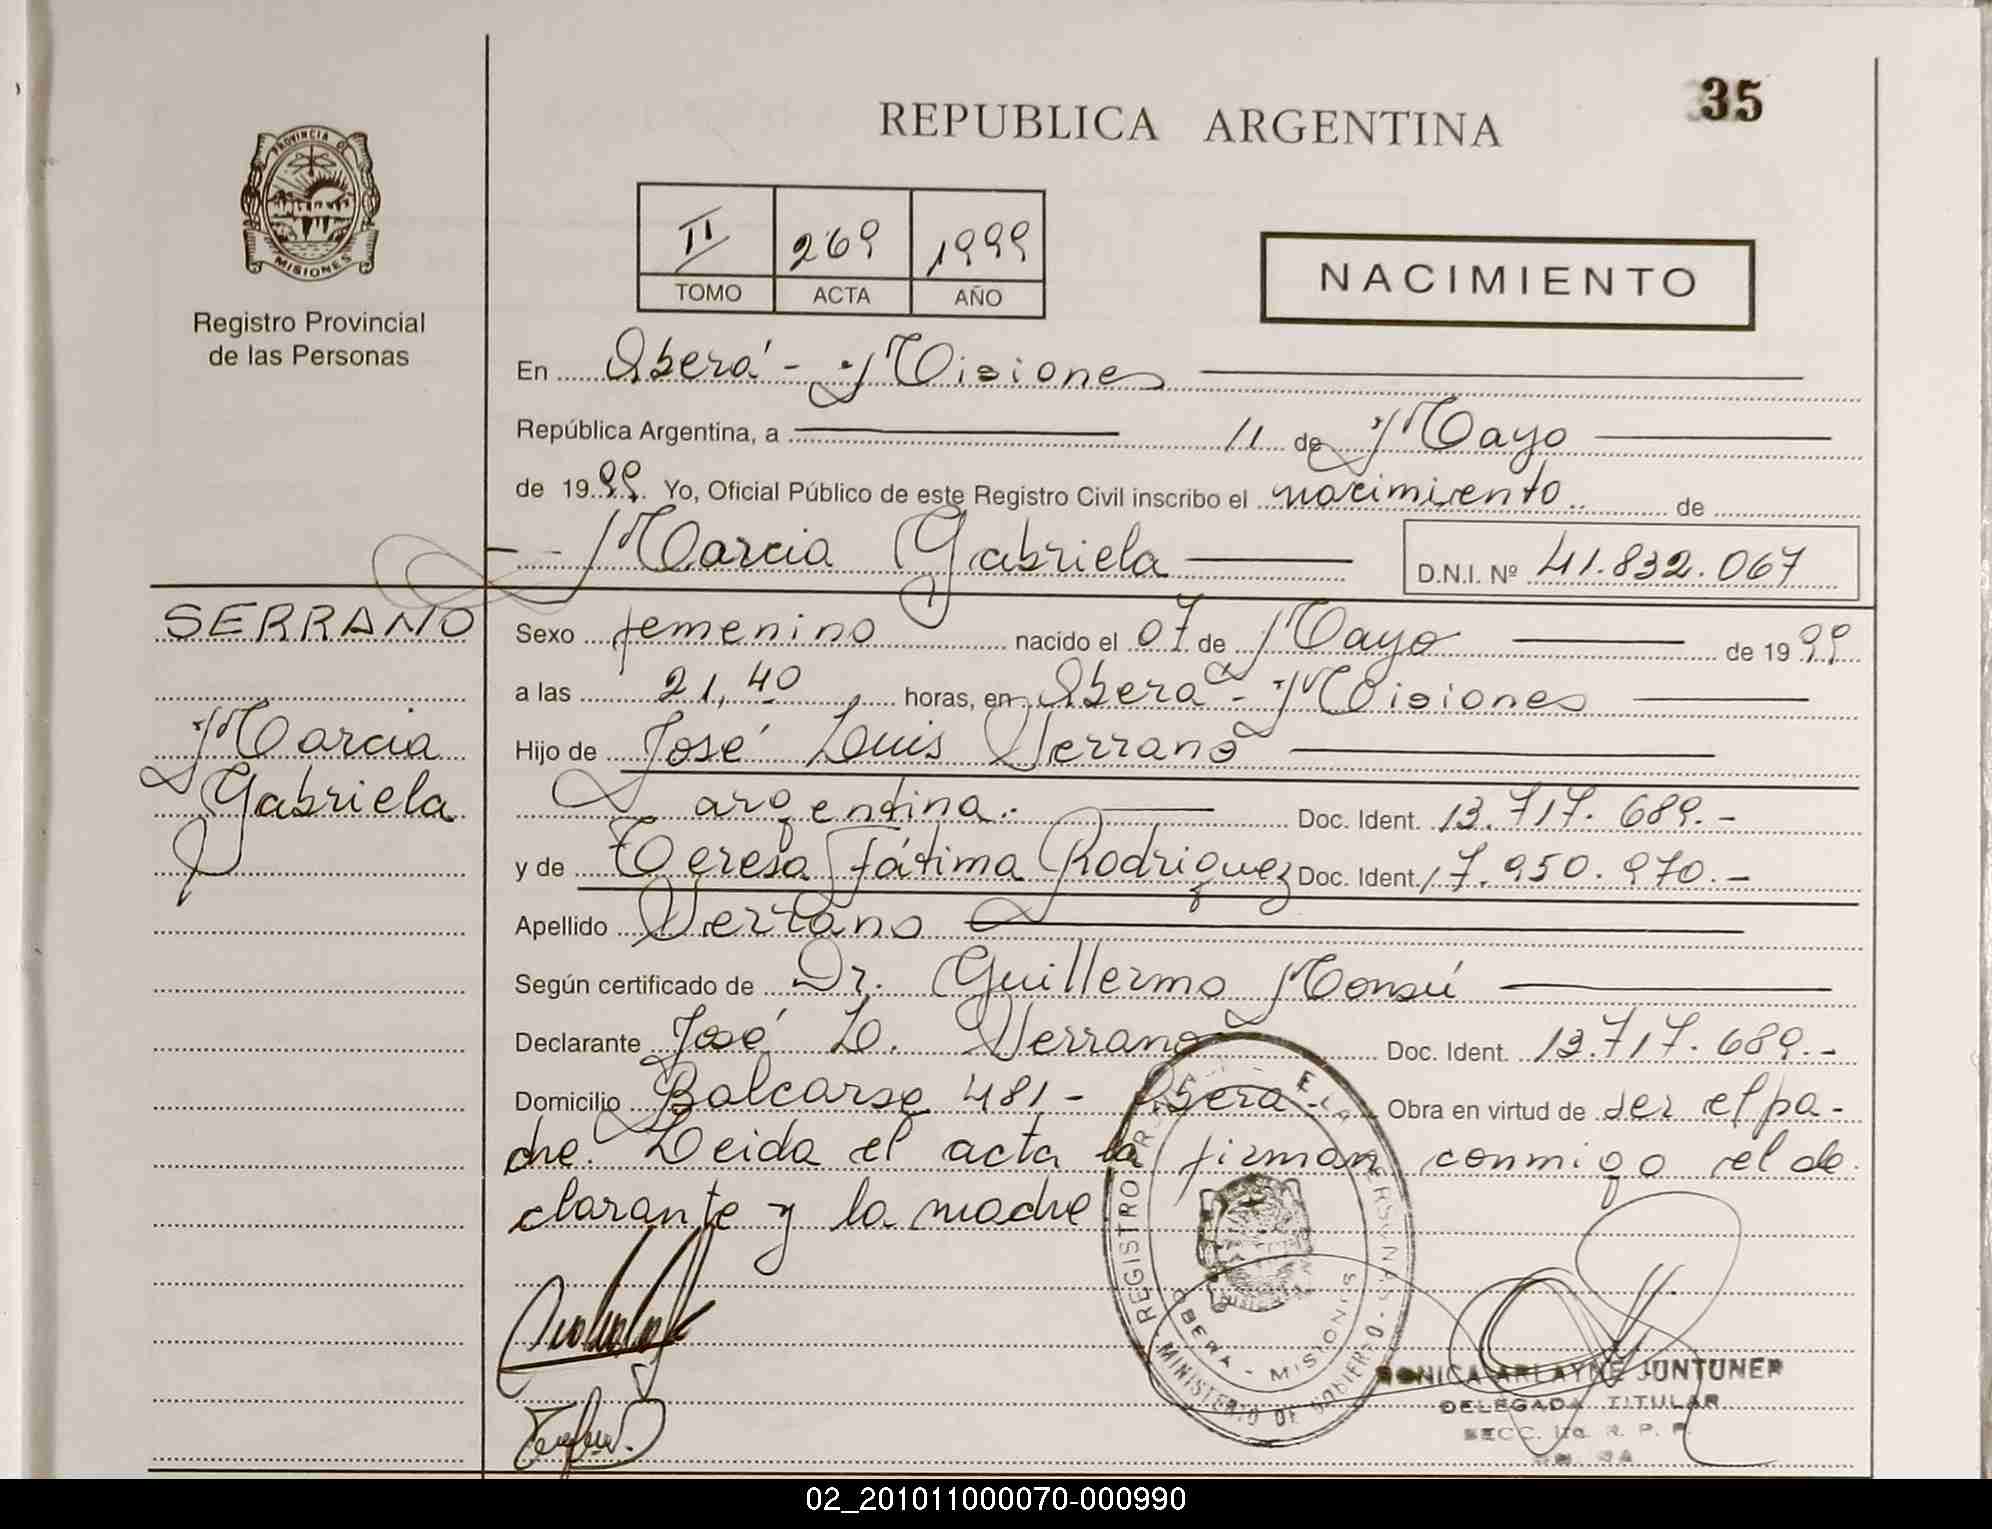 35
REPUBLICA ARGENTINA
PROVINCIA DE
MISIONES
Registro Provincial
de las Personas
II 269 1999
TOMO ACTA AÑO
NACIMIENTO
En Oberá - Misiones
República Argentina, a 11 de Mayo
de 1999 Yo, Oficial Público de este Registro Civil inscribo el nacimiento de
Marcia Gabriela D.N.I. Nº 41.832.067
SERRANO
Marcia
Gabriela
Sexo femenino nacido el 07 de Mayo de 1999
a las 21,40 horas, en Oberá - Misiones
Hijo de José Luis Serrano
argentina.- Doc. Ident. 13.717.689.-
y de Teresa Fátima Rodriguez Doc. Ident. 17.950.970.-
Apellido Serrano
Según certificado de Dr. Guillermo Monsú
Declarante José L. Serrano Doc. Ident. 13.717.689.-
Domicilio Balcarse 481 - Oberá - Obra en virtud de ser el pa-
dre. Leida el acta la firman conmigo el de-
clarante y la madre
REGISTRO
OBERA - MISIONES
MINISTERIO DE GOBIERNO
ARLAYNE JUNTUNER
DELEGADA TITULAR
SECC. 1ra. R. P. P.
02_201011000070-000990